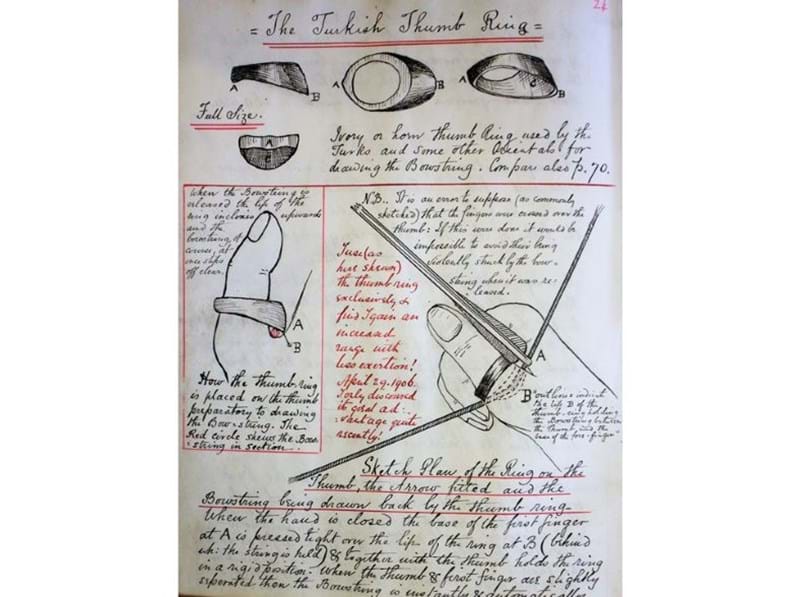 24
= The Turkish Thumb Ring =
A
B
A
B
A
C
B
Full Size.
A
C
Ivory or horn Thumb Ring used by the
Turks and some other Orientals for
drawing the Bowstring. Compare also p. 70.
When the Bowstring is
released the lip of the
ring inclines upwards
and the
bowstring of
course, at
once slips
off clear.
A
B
How the thumb ring
is placed on the thumb
preparatory to drawing
the Bow-string. The
Red circle shews the Bow-
string in section.
N.B. It is an error to suppose (as commonly
sketched) that the fingers were crossed over the
thumb: If this were done it would be
impossible to avoid their being
violently struck by the bow-
string when it was re-
leased.
I use (as
here shewn)
the thumb ring
exclusively &
find I gain an
increased
range with
less exertion!
April 29. 1906.
I only discovered
its great ad-
vantage quite
recently!
A
B
outlines indicate
the lip B of the
thumb-ring holding
the Bowstring between
the thumb and the
base of the fore-finger"
Sketch Plan of the Ring on the
Thumb, the Arrow fitted and the
Bowstring being drawn back by the thumb ring-
When the hand is closed the base of the first finger
at A is pressed tight over the lip of the ring at B (behind
wh: the string is held) & together with the thumb holds the ring
in a rigid position. When the thumb & first finger are slightly
seperated then the Bowstring is instantly & automatically